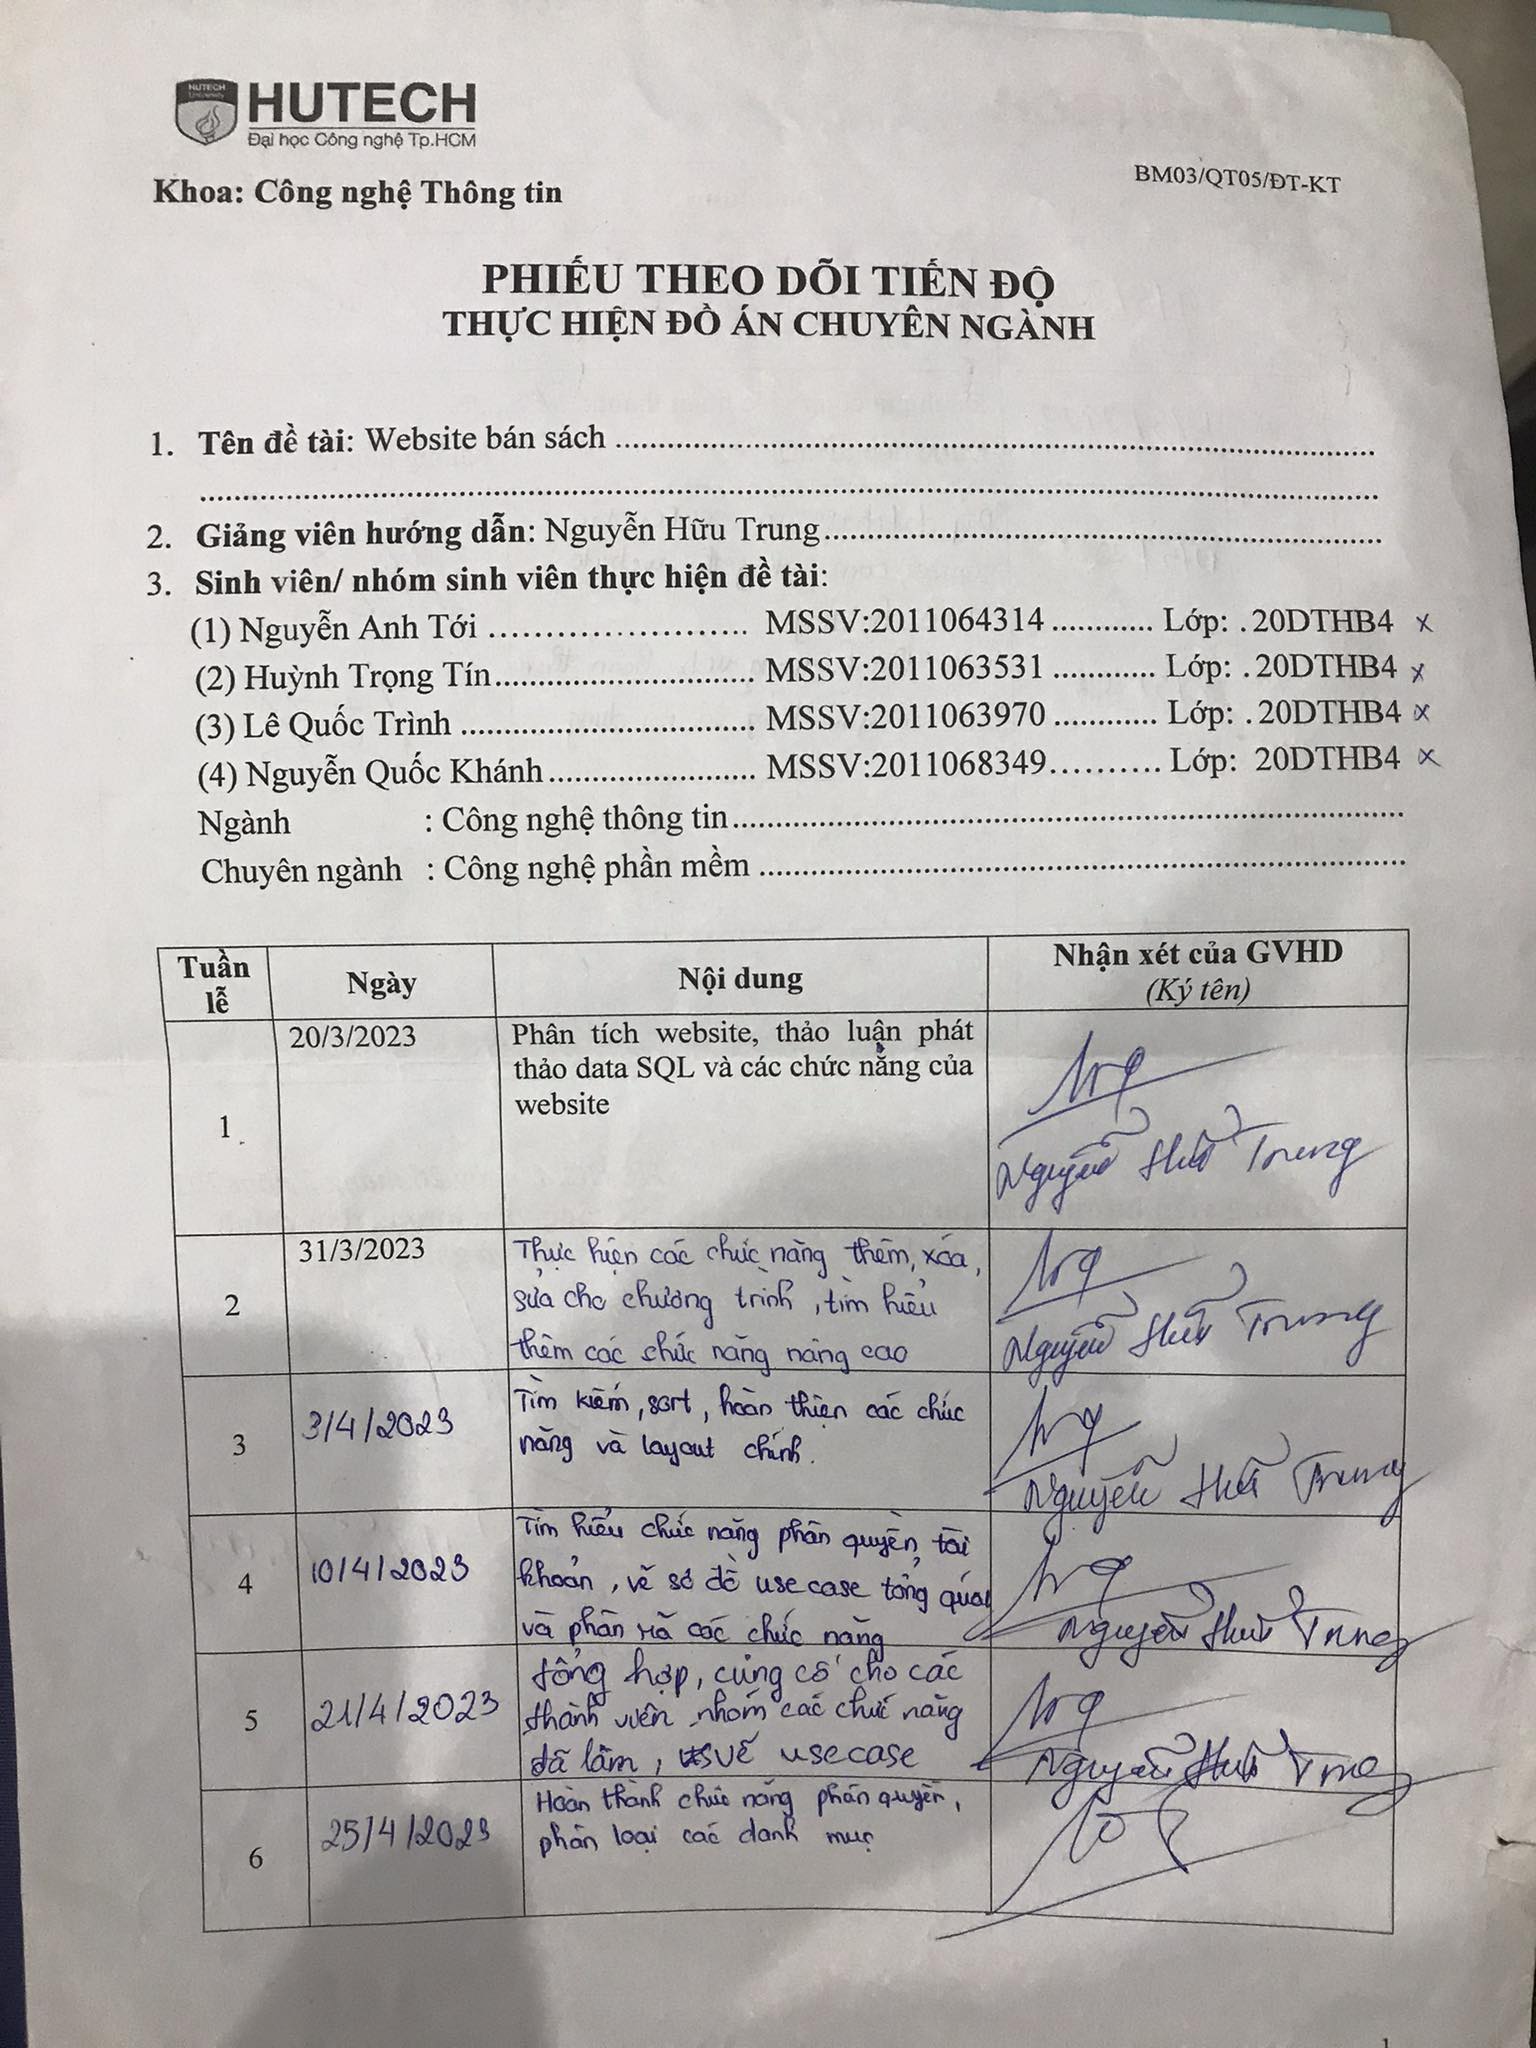 HUTECH
University
HUTECH
Đại học Công nghệ Tp.HCM
Khoa: Công nghệ Thông tin
BM03/QT05/ĐT-KT
PHIẾU THEO DÕI TIẾN ĐỘ
THỰC HIỆN ĐỒ ÁN CHUYÊN NGÀNH
1. Tên đề tài: Website bán sách
2. Giảng viên hướng dẫn: Nguyễn Hữu Trung
3. Sinh viên/ nhóm sinh viên thực hiện đề tài:
(1) Nguyễn Anh Tới MSSV:2011064314 Lớp: .20DTHB4 x
(2) Huỳnh Trọng Tín MSSV:2011063531 Lớp: .20DTHB4 x
(3) Lê Quốc Trình MSSV:2011063970 Lớp: .20DTHB4 x
(4) Nguyễn Quốc Khánh MSSV:2011068349 Lớp: 20DTHB4 x
Ngành : Công nghệ thông tin
Chuyên ngành : Công nghệ phần mềm
Tuần
lễ
Ngày
Nội dung
Nhận xét của GVHD
(Ký tên)
1
20/3/2023
Phân tích website, thảo luận phát
thảo data SQL và các chức năng của
website
Nguyễn Hữu Trung
2
31/3/2023
Thực hiện các chức năng thêm, xóa,
sửa cho chương trình, tìm hiểu
thêm các chức năng nâng cao
Nguyễn Hữu Trung
3
3/4/2023
Tìm kiếm, sort, hoàn thiện các chức
năng và layout chính.
Nguyễn Hữu Trung
4
10/4/2023
Tìm hiểu chức năng phân quyền, tài
khoản, vẽ sơ đồ use case tổng quát
và phân rã các chức năng
Nguyễn Hữu Trung
5
21/4/2023
tổng hợp, củng cố cho các
thành viên nhóm các chức năng
đã làm, vẽ usecase
Nguyễn Hữu Trung
6
25/4/2023
Hoàn thành chức năng phân quyền,
phân loại các danh mục
1